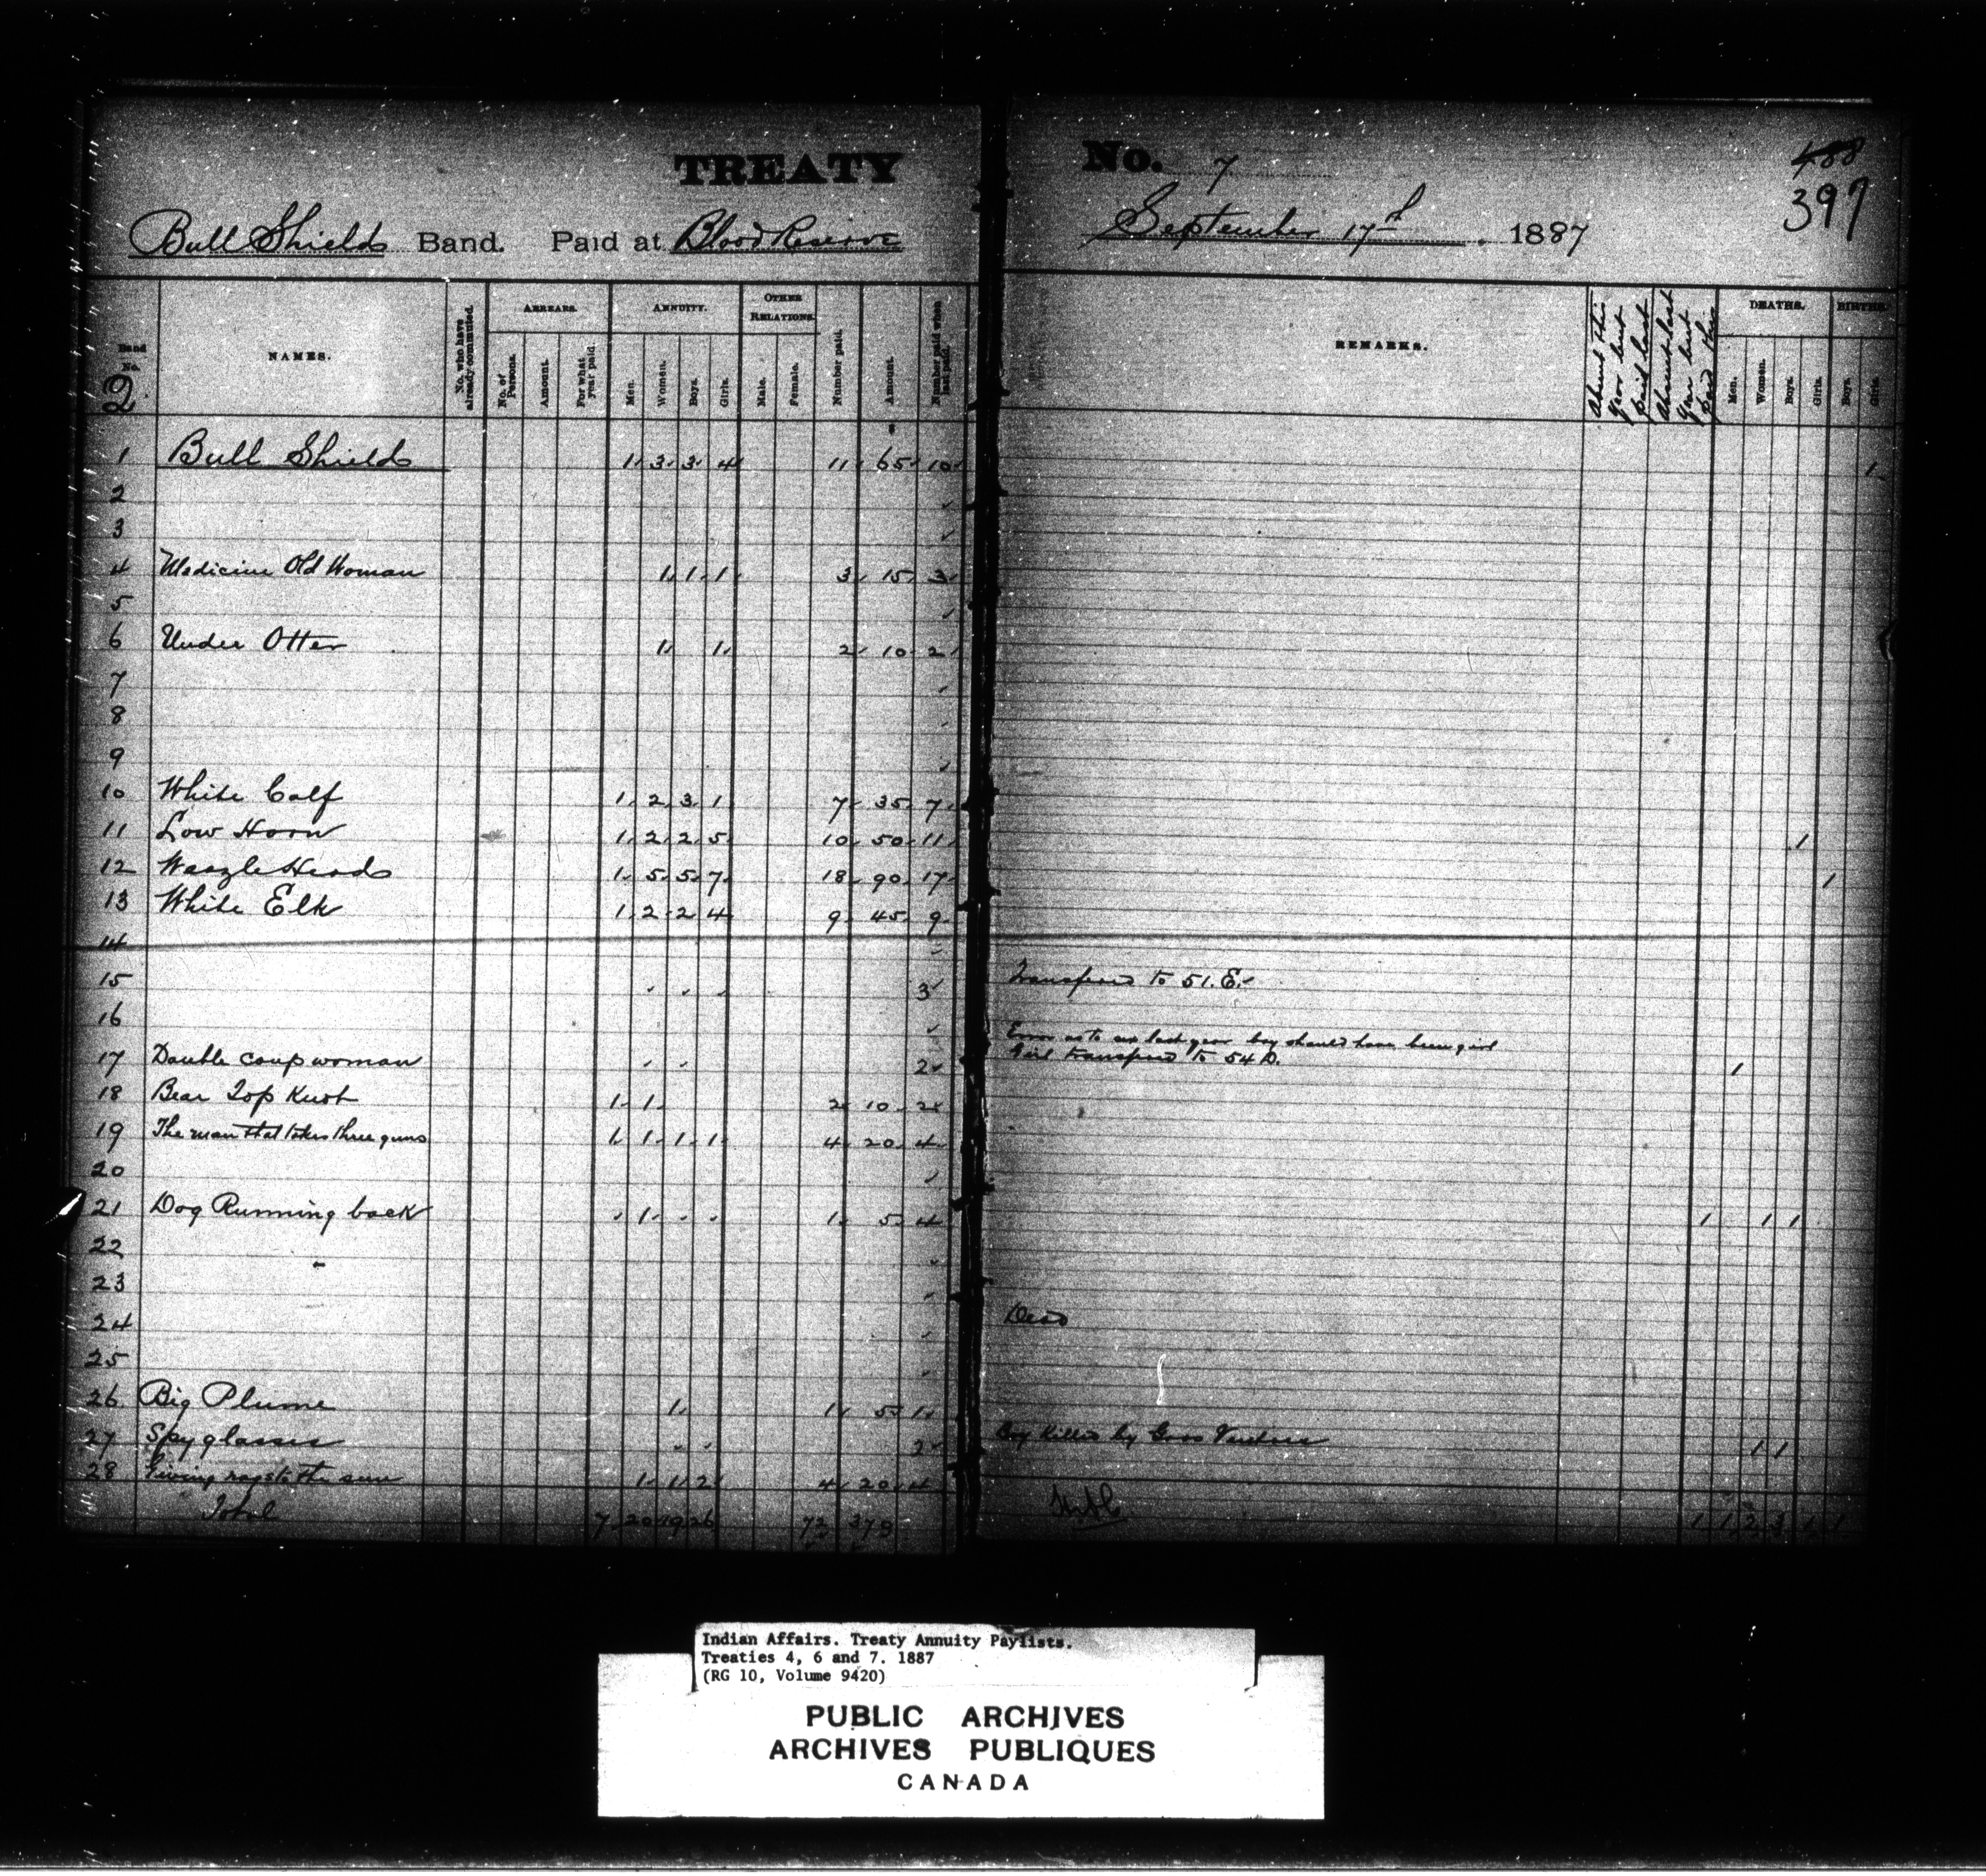 TREATY No. 7
488
397
Bull Shields Band. Paid at Blood Reserve September 17th, 1887
Band No. NAMES. No. who have already commuted. ARREARS. No. of Persons. Amount. For what year paid. ANNUITY. Men. Women. Boys. Girls. OTHER RELATIONS. Male. Female. Number paid. Amount. Number paid when last paid. REMARKS. Absent this year but paid last Absent last year but paid this DEATHS. Men. Women. Boys. Girls. BIRTHS. Boys. Girls.
2
1 Bull Shields 1 3 3 4 11 65 10 1
2
3
4 Medicine Old Woman 1 1 1 3 15 3
5
6 Under Otter 1 1 2 10 2
7
8
9
10 White Calf 1 2 3 1 7 35 7
11 Low Horn 1 2 2 5 10 50 11 1
12 Weazle Heads 1 5 5 7 18 90 17 1
13 White Elk 1 2 2 4 9 45 9
14
15 3 Transferred to 51. E.
16
Error as to sex last year boy should have been girl
17 Double coup woman 2 Girl transferred to 54 D. 1
18 Bear Top Knot 1 1 2 10 2
19 The man that takes three guns 1 1 1 1 4 20 4
20
21 Dog Running back 1 1 5 4 1 1 1
22
23
24 Dead
25
26 Big Plume 1 1 5 1
27 Spy glasses 2 Boy Killed by Gros Ventres 1 1
28 Giving rags to the sun 1 1 2 4 20 4
Total 7 20 19 26 72 379 1 1 2 3 1 1
Indian Affairs. Treaty Annuity Paylists.
Treaties 4, 6 and 7. 1887
(RG 10, Volume 9420)
PUBLIC ARCHIVES
ARCHIVES PUBLIQUES
CANADA